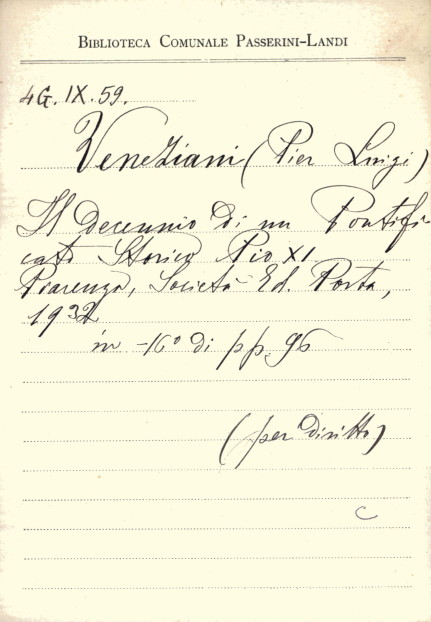 BIBLIOTECA COMUNALE PASSERINI-LANDI
4G. IX. 59.
Veneziani (Pier Luigi)
Il decennio di un Pontifi
cato Storico Pio XI
Piacenza, Società Ed. Porta,
1932
in -16° di pp. 96
(per diritto)
C